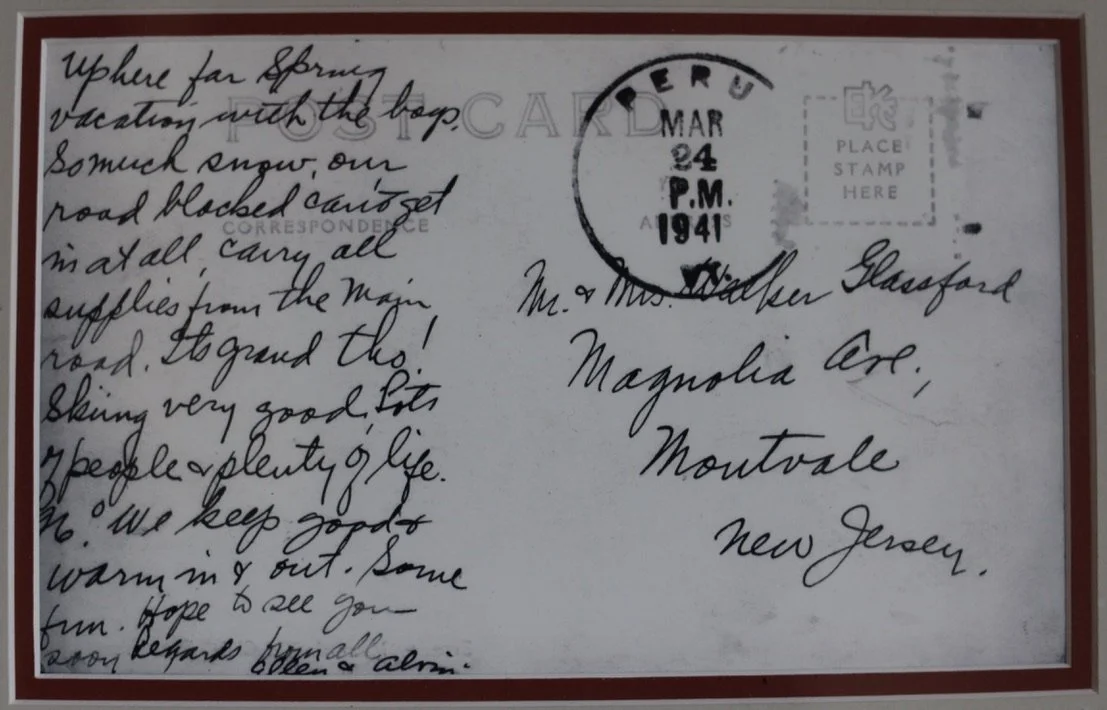 Up here for Spring
vacation with the boys.
So much snow, our
road blocked can't get
in at all, carry all
supplies from the Main
road. Its grand tho!
Skiing very good. Lots
of people & plenty of life.
We keep good &
warm in & out. Some
fun. Hope to see you
soon Regards from all
& Alvin.
POST CARD
CORRESPONDENCE
PERU
MAR
24
P.M.
1941
VT.
EKC
PLACE
STAMP
HERE
Mr. & Mrs. Walker Glassford
Magnolia Ave.,
Montvale
New Jersey.